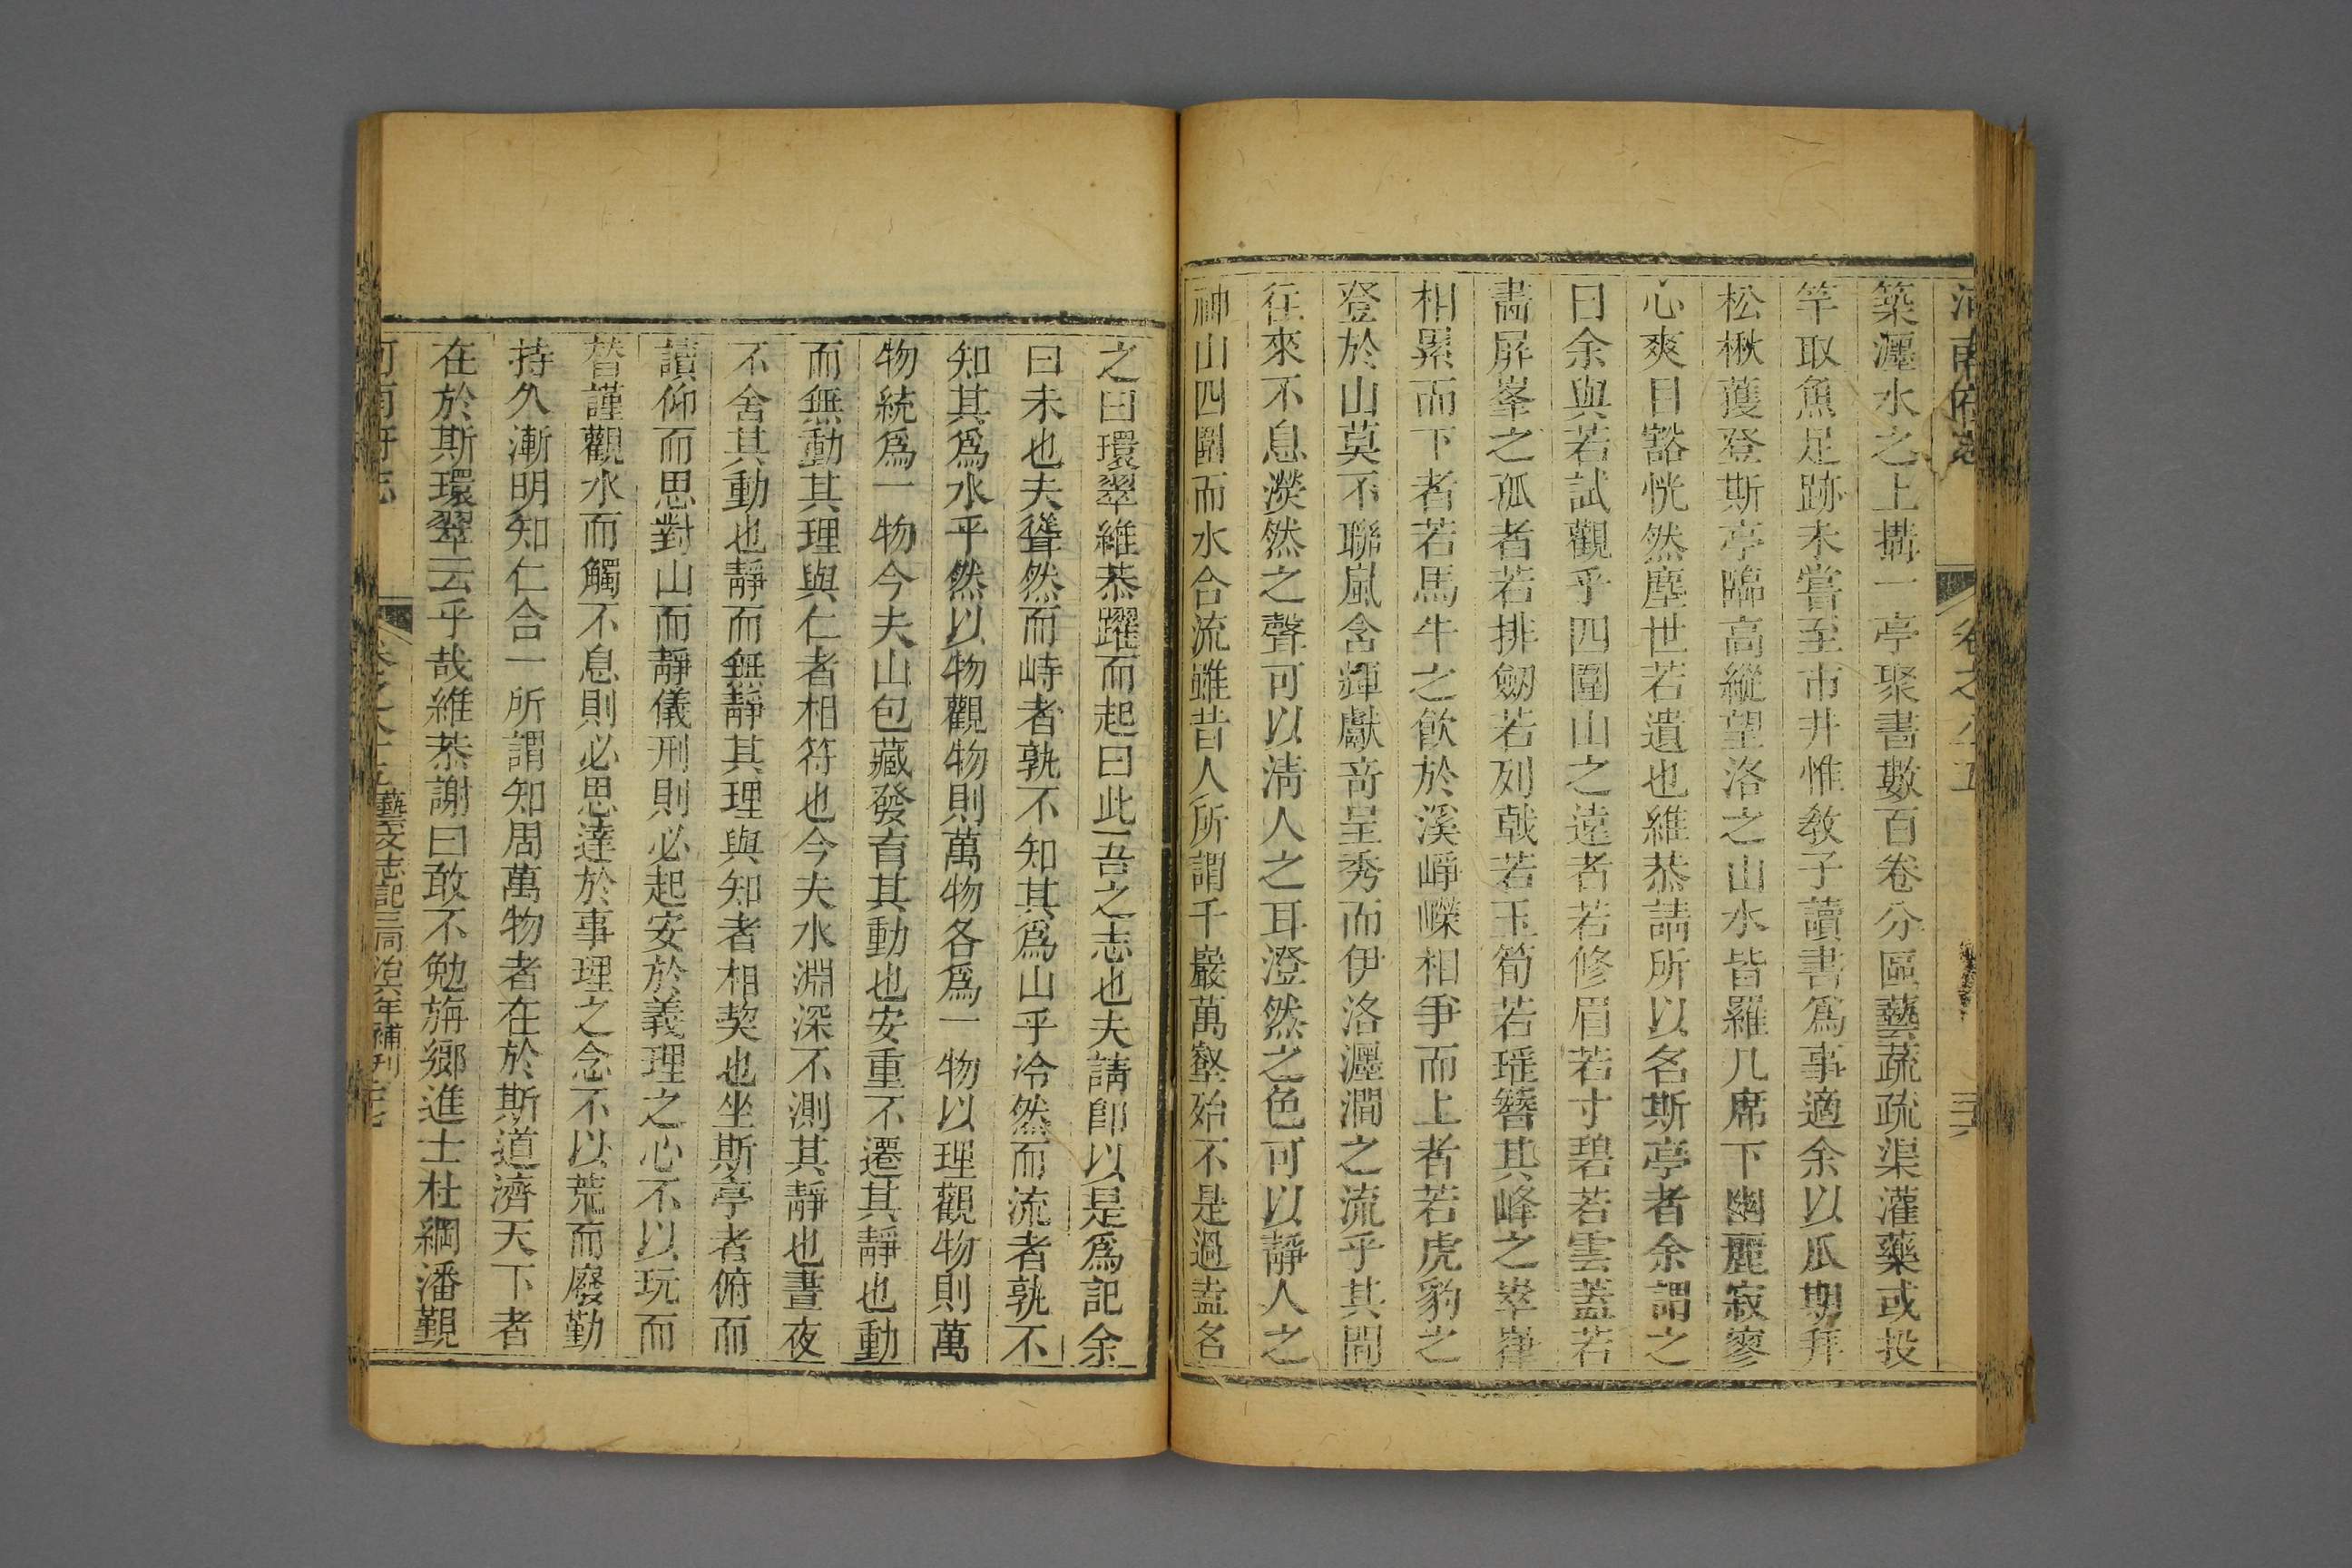 河南府志 卷之八五 三六
築瀍水之上搆一亭聚書數百卷分區藝蔬疏渠灌藥或投
竿取魚足跡未嘗至市井惟敎子讀書爲事適余以瓜期拜
松楸䕶登斯亭臨高縱望洛之山水皆羅几席下幽麗寂寥
心爽目豁恍然塵世若遺也維恭請所以名斯亭者余謂之
曰余與若試觀乎四圍山之遠者若修眉若寸碧若雲蓋若
畵屛峯之孤者若排劒若列㦸若玉筍若瑶簪其峰之崒嵂
相累而下者若馬牛之飮於溪崢嶸相爭而上者若虎豹之
登於山莫不聯嵐含輝獻奇呈秀而伊洛瀍澗之流乎其間
往來不息濙然之聲可以淸人之耳澄然之色可以靜人之
神山四圍而水合流雖昔人所謂千巖萬壑殆不是過盍名
之曰環翠維恭躍而起曰此吾之志也夫請卽以是爲記余
曰未也夫聳然而峙者孰不知其爲山乎冷然而流者孰不
知其爲水乎然以物觀物則萬物各爲一物以理觀物則萬
物統爲一物今夫山包藏發育其動也安重不遷其靜也動
而無動其理與仁者相符也今夫水淵深不測其靜也晝夜
不舍其動也靜而無靜其理與知者相契也坐斯亭者俯而
讀仰而思對山而靜儀刑則必起安於義理之心不以玩而
替謹觀水而觸不息則必思達於事理之念不以荒而廢勤
持久漸明知仁合一所謂知周萬物者在於斯道濟天下者
在於斯環翠云乎哉維恭謝曰敢不勉旃鄉進士杜綱潘覲
河南府志 藝文志記三同治六年補刊